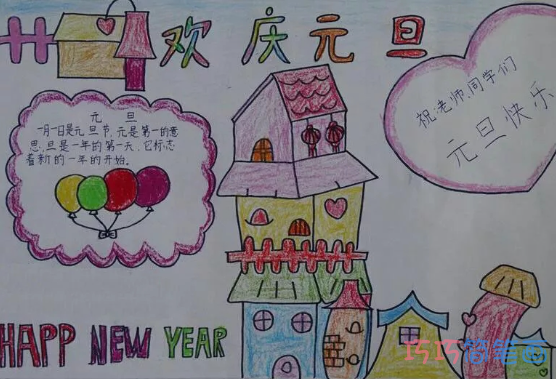 欢庆元旦
元旦
一月一日是元旦节,元是第一的意
思,旦是一年的第一天,它标志
着新的一年的开始。
祝老师、同学们
元旦快乐
HAPP NEW YEAR
巧巧简笔画